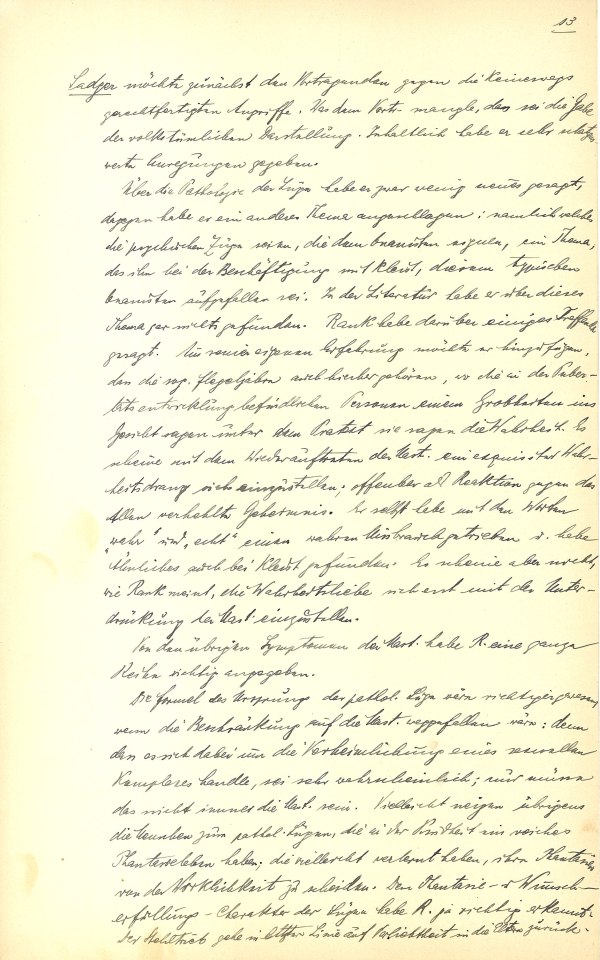 13
Sadger möchte zunächst den Vortragenden gegen die keineswegs
gerechtfertigten Angriffe. Was dem Vortr. mangle, das sei die Gabe
der volkstümlichen Darstellung. Inhaltlich habe er sehr schätzens
werte Anregungen gegeben.
Über die Pathologie der Lüge habe er zwar wenig neues gesagt,
dagegen habe er ein anderes Thema angeschlagen: nämlich welches
die psychischen Züge seien, die dem Onanisten eignen, ein Thema,
das ihm bei der Beschäftigung mit Kleist, diesem typischen
Onanisten aufgefallen sei. In der Literatur habe er über dieses
Thema gar nichts gefunden. Rank habe darüber einiges Treffende
gesagt. Aus seiner eigenen Erfahrung möchte er hinzufügen,
dass die sog. Flegeljahre auch hierher gehören, wo die in der Puber-
tätsentwicklung befindlichen Personen einem Grobheiten ins
Gesicht sagen unter dem Pretext sie sagen die Wahrheit. Es
scheine mit dem Wiederauftreten der Mast. ein exquisiter Wahr-
heitsdrang sich einzustellen; offenbar als Reaktion gegen das
Allen verhehlte Geheimnis. Er selbst habe mit den Worten
"wahr" und "echt" einen wahren Missbrauch getrieben u. habe
Ähnliches auch bei Kleist gefunden. Es scheine aber nicht,
wie Rank meint, die Wahrheitsliebe sich erst mit der Unter-
drückung der Mast. einzustellen.
Von den übrigen Symptomen der Mast. habe R. eine ganze
Reihe richtig angegeben.
Die Formel des Ursprungs der pathol. Lüge wäre richtiger gewesen,
wenn die Beschränkung auf die Mast. weggefallen wäre: denn
dass es sich dabei um die Verheimlichung eines sexuellen
Komplexes handle, sei sehr wahrscheinlich; nur müsse
das nicht immer die Mast. sein. Vielleicht neigen übrigens
die Menschen zum pathol. Lügen, die in der Kindheit ein reiches
Phantasieleben haben; die vielleicht verlernt haben, ihre Phantasien
von der Wirklichkeit zu scheiden. Den Phantasie- u Wunsch-
erfüllungs-Charakter der Lügen habe R. ja richtig erkannt.
Der Stehltrieb gehe in letzter Linie auf Verliebtheit in die Eltern zurück.